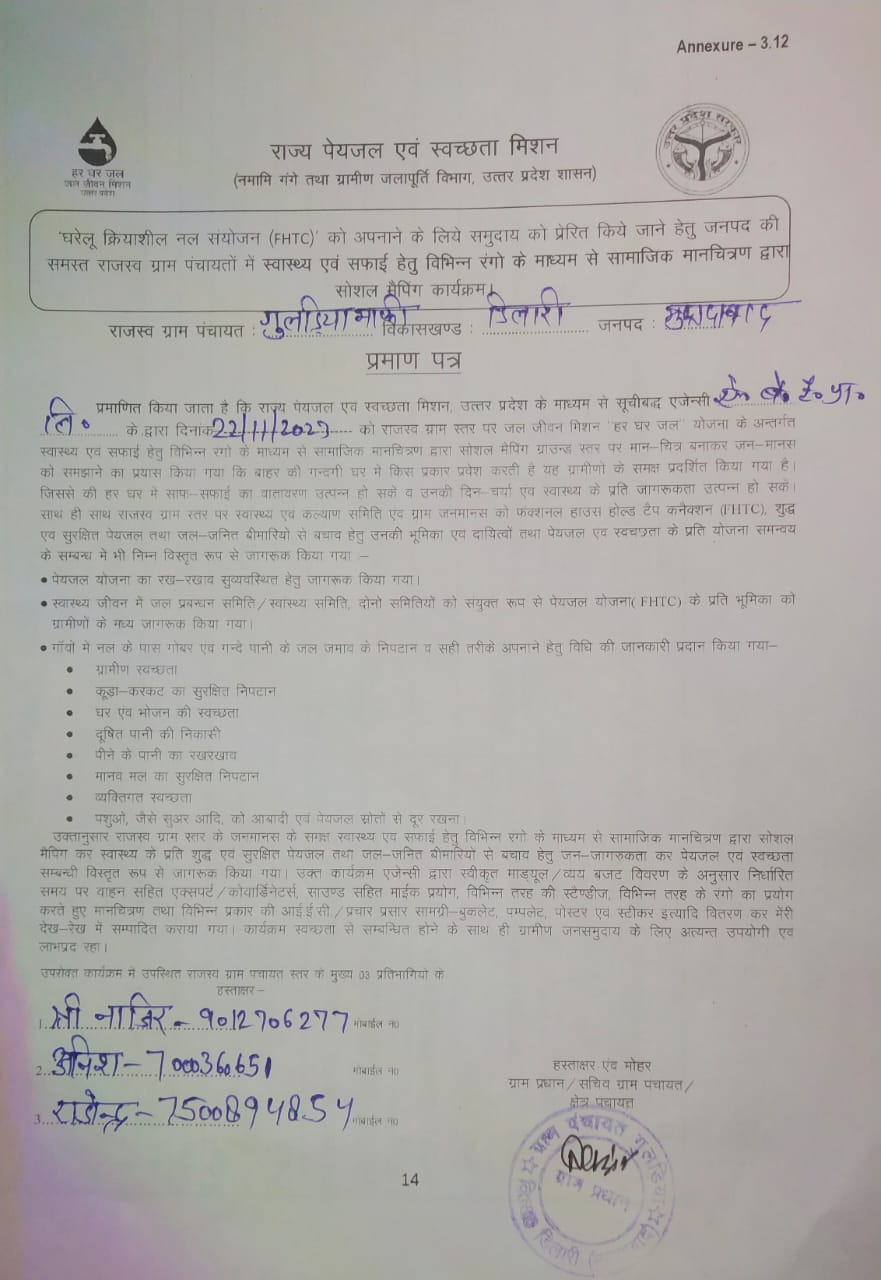 Annexure – 3.12
हर घर जल
जल जीवन मिशन
उत्तर प्रदेश
उत्तर प्रदेश सरकार
राज्य पेयजल एवं स्वच्छता मिशन
(नमामि गंगे तथा ग्रामीण जलापूर्ति विभाग, उत्तर प्रदेश शासन)
'घरेलू क्रियाशील नल संयोजन (FHTC)' को अपनाने के लिये समुदाय को प्रेरित किये जाने हेतु जनपद की
समस्त राजस्व ग्राम पंचायतों में स्वास्थ्य एवं सफाई हेतु विभिन्न रंगो के माध्यम से सामाजिक मानचित्रण द्वारा
सोशल मैपिंग कार्यक्रम।
राजस्व ग्राम पंचायत : गुलड़िया माफी विकासखण्ड : डिलारी जनपद : मुरादाबाद
प्रमाण पत्र
प्रमाणित किया जाता है कि राज्य पेयजल एवं स्वच्छता मिशन, उत्तर प्रदेश के माध्यम से सूचीबद्ध एजेन्सी
लि० के द्वारा दिनांक 22/11/202 को राजस्व ग्राम स्तर पर जल जीवन मिशन "हर घर जल" योजना के अन्तर्गत
स्वास्थ्य एवं सफाई हेतु विभिन्न रंगो के माध्यम से सामाजिक मानचित्रण द्वारा सोशल मैपिंग ग्राउन्ड स्तर पर मान–चित्र बनाकर जन–मानस
को समझाने का प्रयास किया गया कि बाहर की गन्दगी घर मे किस प्रकार प्रवेश करती है यह ग्रामीणो के समक्ष प्रदर्शित किया गया है।
जिससे की हर घर में साफ–सफाई का वातावरण उत्पन्न हो सकें व उनकी दिन–चर्या एवं स्वास्थ्य के प्रति जागरूकता उत्पन्न हो सकें।
साथ ही साथ राजस्व ग्राम स्तर पर स्वास्थ्य एवं कल्याण समिति एवं ग्राम जनमानस को फंक्शनल हाउस होल्ड टैप कनैक्शन (FHTC), शुद्ध
एवं सुरक्षित पेयजल तथा जल–जनित बीमारियों से बचाव हेतु उनकी भूमिका एवं दायित्वों तथा पेयजल एवं स्वच्छता के प्रति योजना समन्वय
के सम्बन्ध में भी निम्न विस्तृत रूप से जागरूक किया गया :–
• पेयजल योजना का रख–रखाव सुव्यवस्थित हेतु जागरूक किया गया।
• स्वास्थ्य जीवन में जल प्रबन्धन समिति/स्वास्थ्य समिति, दोनो समितियों को संयुक्त रूप से पेयजल योजना( FHTC) के प्रति भूमिका को
ग्रामीणों के मध्य जागरूक किया गया।
• गाँवों में नल के पास गोबर एवं गन्दे पानी के जल जमाव के निपटान व सही तरीके अपनाने हेतु विधि की जानकारी प्रदान किया गया–
• ग्रामीण स्वच्छता
• कूडा–करकट का सुरक्षित निपटान
• घर एंव भोजन की स्वच्छता
• दूषित पानी की निकासी
• पीने के पानी का रखरखाव
• मानव मल का सुरक्षित निपटान
• व्यक्तिगत स्वच्छता
• पशुओं, जैसे सुअर आदि, को आबादी एवं पेयजल स्रोतों से दूर रखना।
उक्तानुसार राजस्व ग्राम स्तर के जनमानस के समक्ष स्वास्थ्य एवं सफाई हेतु विभिन्न रंगो के माध्यम से सामाजिक मानचित्रण द्वारा सोशल
मैपिंग कर स्वास्थ्य के प्रति शुद्ध एवं सुरक्षित पेयजल तथा जल–जनित बीमारियों से बचाव हेतु जन–जागरुकता कर पेयजल एवं स्वच्छता
सम्बन्धी विस्तृत रूप से जागरूक किया गया। उक्त कार्यक्रम एजेन्सी द्वारा स्वीकृत माड्यूल/व्यय बजट विवरण के अनुसार निर्धारित
समय पर वाहन सहित एक्सपर्ट/कोवार्डिनेटर्स, साउण्ड सहित माईक प्रयोग, विभिन्न तरह की स्टैण्डीज, विभिन्न तरह के रंगो का प्रयोग
करते हुए मानचित्रण तथा विभिन्न प्रकार की आई.ई.सी./प्रचार प्रसार सामग्री–बुकलेट, पम्पलेट, पोस्टर एवं स्टीकर इत्यादि वितरण कर मेरी
देख–रेख में सम्पादित कराया गया। कार्यक्रम स्वच्छता से सम्बन्धित होने के साथ ही ग्रामीण जनसमुदाय के लिए अत्यन्त उपयोगी एवं
लाभप्रद रहा।
उपरोक्त कार्यक्रम में उपस्थित राजस्व ग्राम पंचायत स्तर के मुख्य 03 प्रतिभागियों के
हस्ताक्षर–
1. श्री नाजिर – 9012706277 मोबाईल न0
2. अनिश – 7000360651 मोबाईल न0
3. राजेन्द्र – 7500894854 मोबाईल न0
हस्ताक्षर एंव मोहर
ग्राम प्रधान/सचिव ग्राम पंचायत/
क्षेत्र पंचायत
ग्राम पंचायत गुलड़िया
ग्राम प्रधान
डिलारी
14